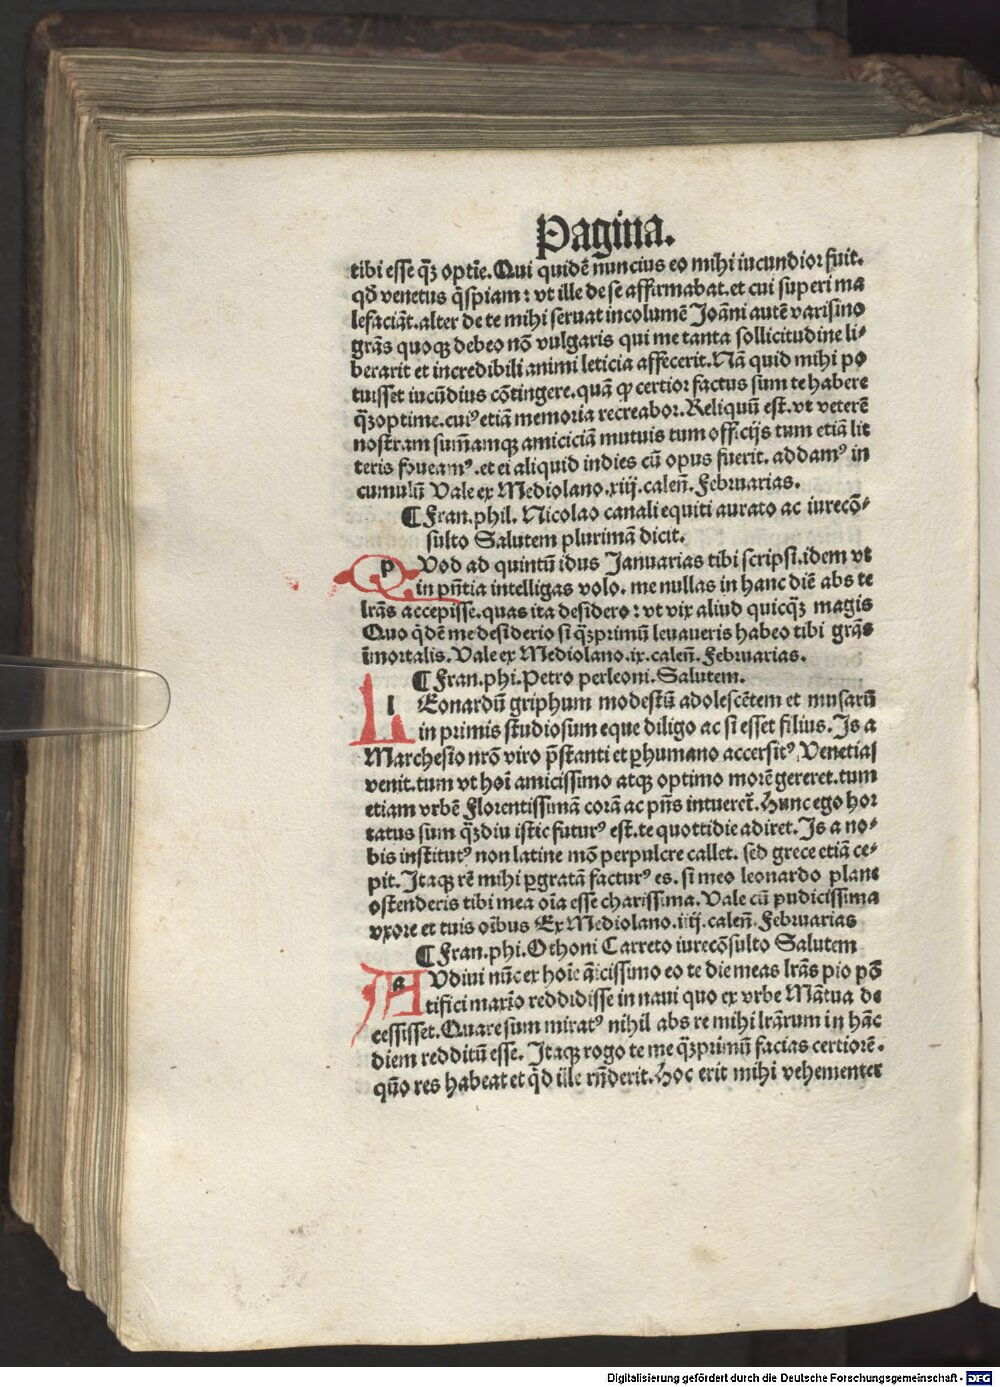 Pagina.
tibi esse q̄ꝫ optīe. Qui quidē nuncius eo mihi iucundior fuit.
qđ venetus q̄spiam : vt ille de se affirmabat. et cui superi ma
lefaciāt. alter de te mihi seruat incolumē Joāni autē varisino
grās quoqꝫ debeo nō vulgaris qui me tanta sollicitudine li⸗
berarit et incredibili animi leticia affecerit. Nā quid mihi po
tuisset iucūdius cōtingere. quā ꝙ certior factus sum te habere
q̄ꝫoptime. cuiꝰ etiā memoria recreabor. Reliquū est. vt veterē
nostram sum̄amqꝫ amiciciā mutuis tum officijs tum etiā lit
teris foueamꝰ. et ei aliquid indies cū opus fuerit. addamꝰ in
cumulū Vale ex Mediolano. xiij. caleñ. Februarias.
¶ Fran. phil. Nicolao canali equiti aurato ac iurecō⸗
sulto Salutem plurimā dicit.
p Vod ad quintū idus Januarias tibi scripsi. idem vt
in pn̄tia intelligas volo. me nullas in hanc diē abs te
lr̄as accepisse. quas ita desidero : vt vix aliud quicq̄ꝫ magis
Quo q̄dē me desiderio si q̄ꝫprimū leuaueris habeo tibi grās
īmortalis. Vale ex Mediolano. ix. caleñ. Februarias.
¶ Fran. phi. Petro perleoni. Salutem.
l Eonardū griphum modestū adolescētem et musarū
in primis studiosum eque diligo ac si esset filius. Is a
Marchesio nrō viro p̄stanti et ꝑhumano accersitꝰ Venetias
venit. tum vt hoī amicissimo atqꝫ optimo morē gereret. tum
etiam vrbē Florentissimā corā ac pn̄s intueret̄. Hunc ego hor
tatus sum q̄ꝫdiu istic futurꝰ est. te quottidie adiret. Is a no⸗
bis institutꝰ non latine mō perpulcre callet. sed grece etiā ce⸗
pit. Itaqꝫ rē mihi ꝑgratā facturꝰ es. si meo leonardo plane
ostenderis tibi mea oīa esse charissima. Vale cū pudicissima
vxore et tuis oībus Ex Mediolano. iiij. caleñ. Februarias
¶ Fran. phi. Othoni Carreto iurecōsulto Salutem
a Vdiui nūc ex hoīe āicissimo eo te die meas lr̄as pio pō
tifici maxīo reddidisse in naui quo ex vrbe Mātua de
cessisset. Quare sum miratꝰ nihil abs re mihi lr̄arum in hāc
diem redditū esse. Itaqꝫ rogo te me q̄ꝫprimū facias certiorē.
quō res habeat et q̄d ille rn̄derit. Hoc erit mihi vehementer
Digitalisierung gefördert durch die Deutsche Forschungsgemeinschaft - DFG